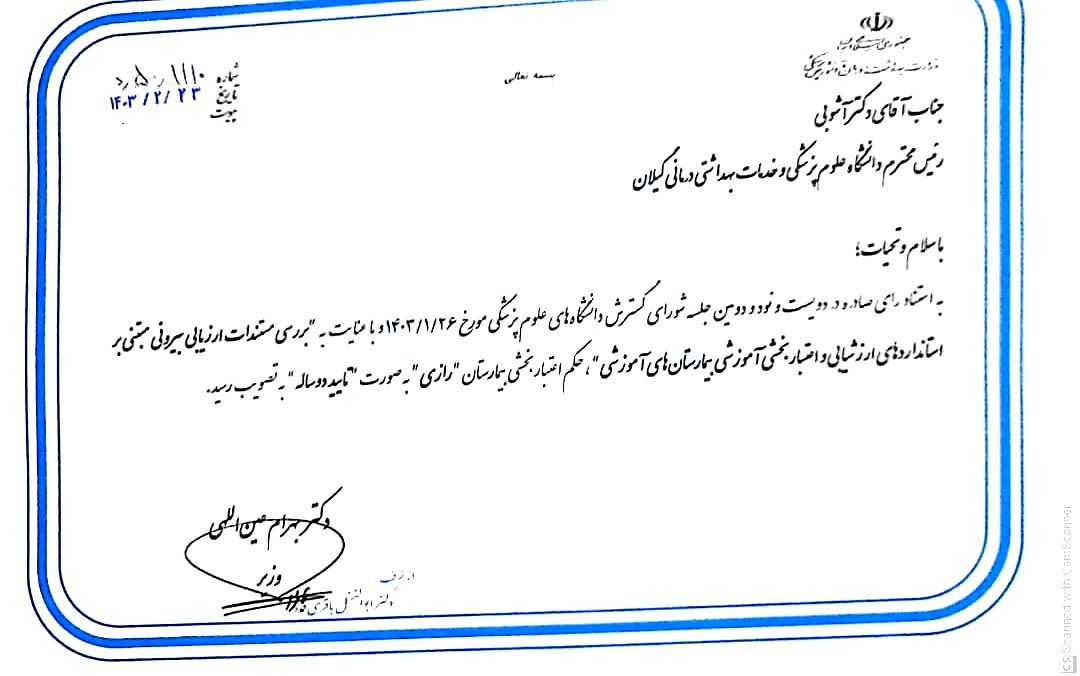 جمهوری اسلامی ایران
وزارت بهداشت، درمان و آموزش پزشکی
بسمه تعالی
شماره
تاریخ ۱۴۰۳/۲/۲۳
پیوست
جناب آقای دکتر آشوبی
رئیس محترم دانشگاه علوم پزشکی و خدمات بهداشتی درمانی گیلان
با سلام و تحیات؛
به استناد رای صادره در دویست و نود و دومین جلسه شورای گسترش دانشگاه های علوم پزشکی مورخ ۱۴۰۳/۱/۲۶ و با عنایت به "بررسی مستندات ارزیابی بیرونی مبتنی بر
استانداردهای ارزشیابی و اعتباربخشی آموزشی بیمارستان های آموزشی"، حکم اعتباربخشی بیمارستان "رازی" به صورت "تایید دو ساله" به تصویب رسید.
دکتر بهرام عین اللهی
وزیر
از طرف
دکتر ابوالفضل باقری
CS Scanned with CamScanner